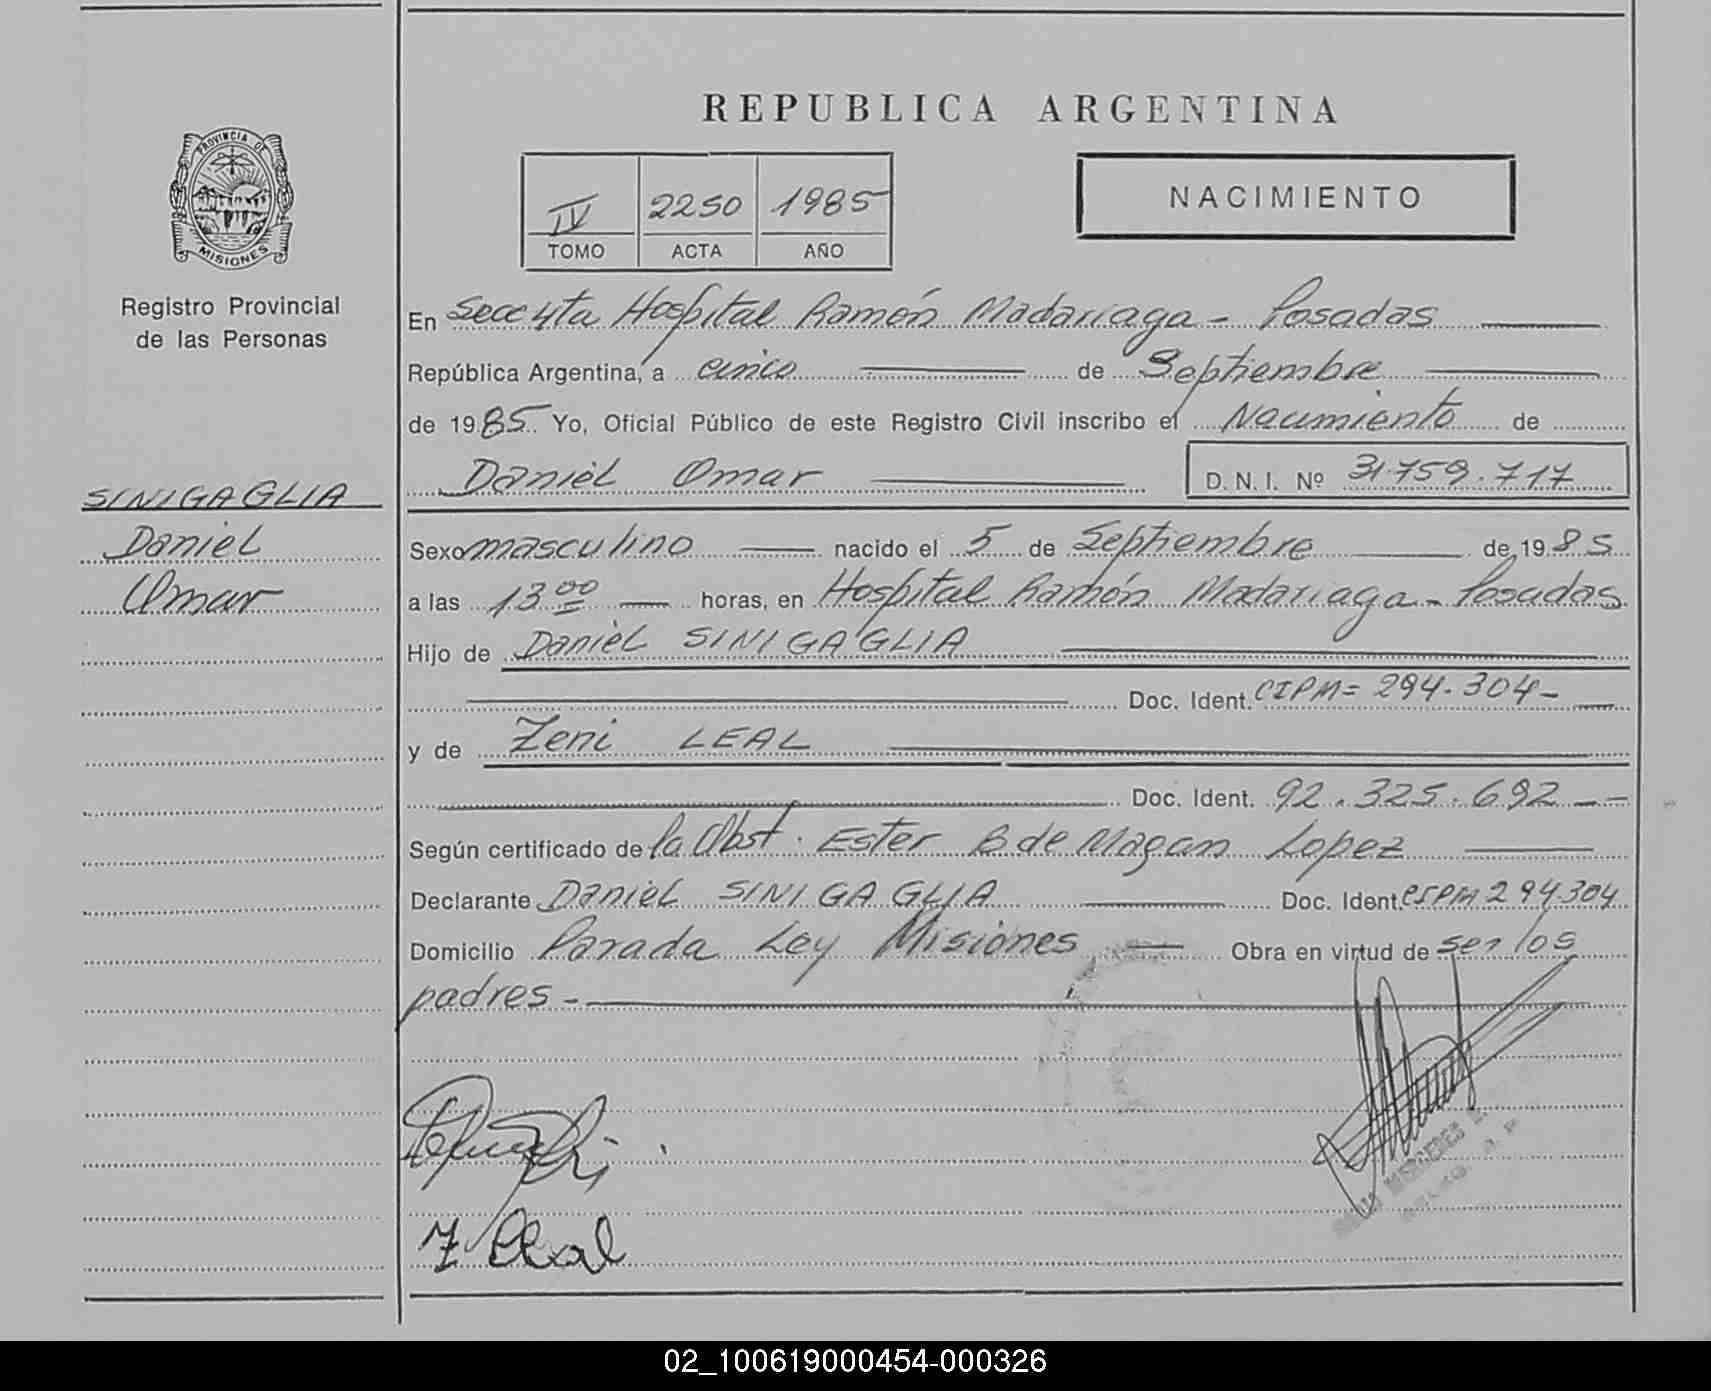 REPUBLICA ARGENTINA
PROVINCIA DE
MISIONES
Registro Provincial
de las Personas
IV 2250 1985
TOMO ACTA AÑO
NACIMIENTO
En Secc 4ta Hospital Ramón Madariaga - Posadas
República Argentina, a cinco de Septiembre
de 1985 Yo, Oficial Público de este Registro Civil inscribo el Nacimiento de
Daniel Omar D. N. I. Nº 31.759.717
SINIGAGLIA
Daniel
Omar
Sexo masculino nacido el 5 de Septiembre de 1985
a las 13 00 horas, en Hospital Ramón Madariaga - Posadas
Hijo de Daniel SINIGAGLIA
Doc. Ident. CIPM= 294.304-
y de Zeni LEAL
Doc. Ident. 92.325.692 --
Según certificado de la Obst. Ester B de Magan Lopez
Declarante Daniel SINIGAGLIA Doc. Ident. CIPM 294.304
Domicilio Parada Ley Misiones Obra en virtud de ser los
padres -
Z Leal
MERCEDES
02_100619000454-000326